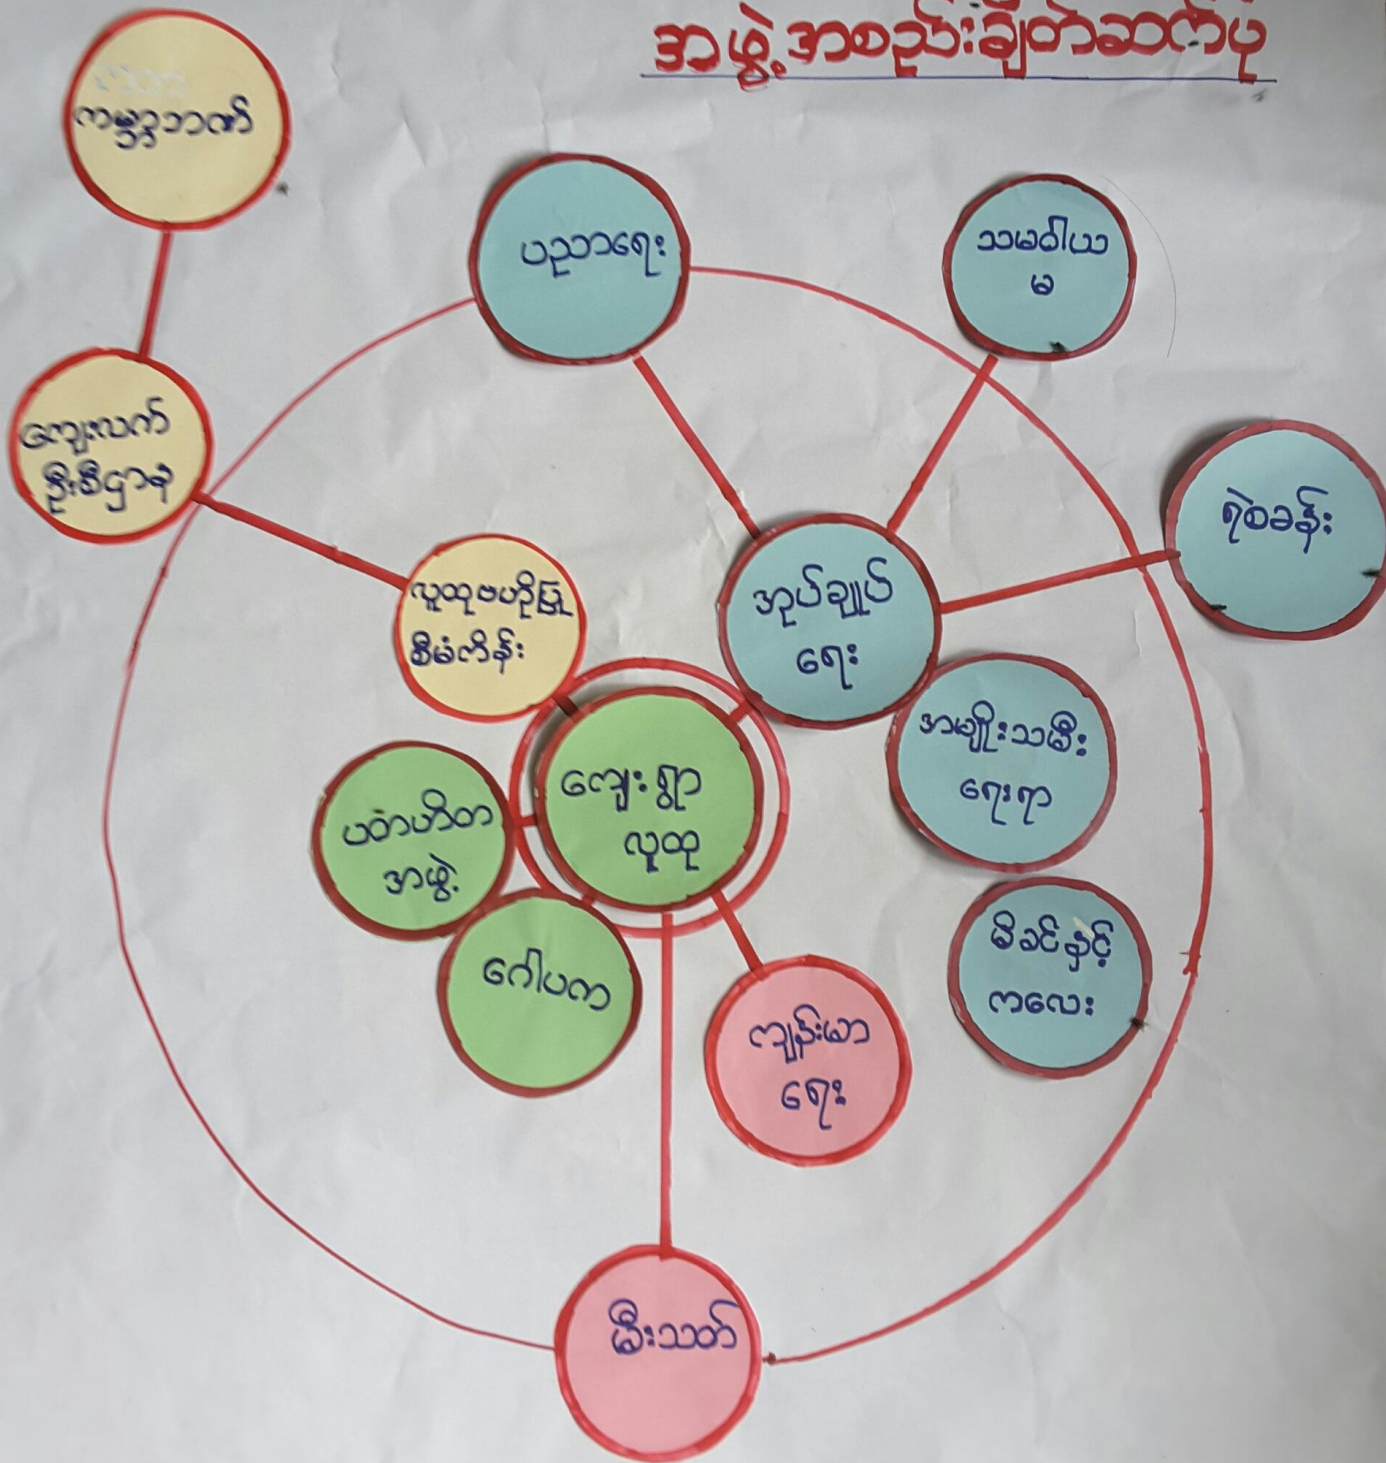 အဖွဲ့အစည်းချိတ်ဆက်ပုံ
ကမ္ဘာ့ဘဏ်
ပညာရေး
သမဝါယ
မ
ကျေးလက်
ဦးစီဌာန
ရဲစခန်း
လူထုဗဟိုပြု
စီမံကိန်း
အုပ်ချုပ်
ရေး
အမျိုးသမီး
ရေးရာ
ကျေးရွာ
လူထု
ပတဟိတ
အဖွဲ့
ဂေါပက
မိခင်နှင့်
ကလေး
ကျန်းမာ
ရေး
မီးသတ်